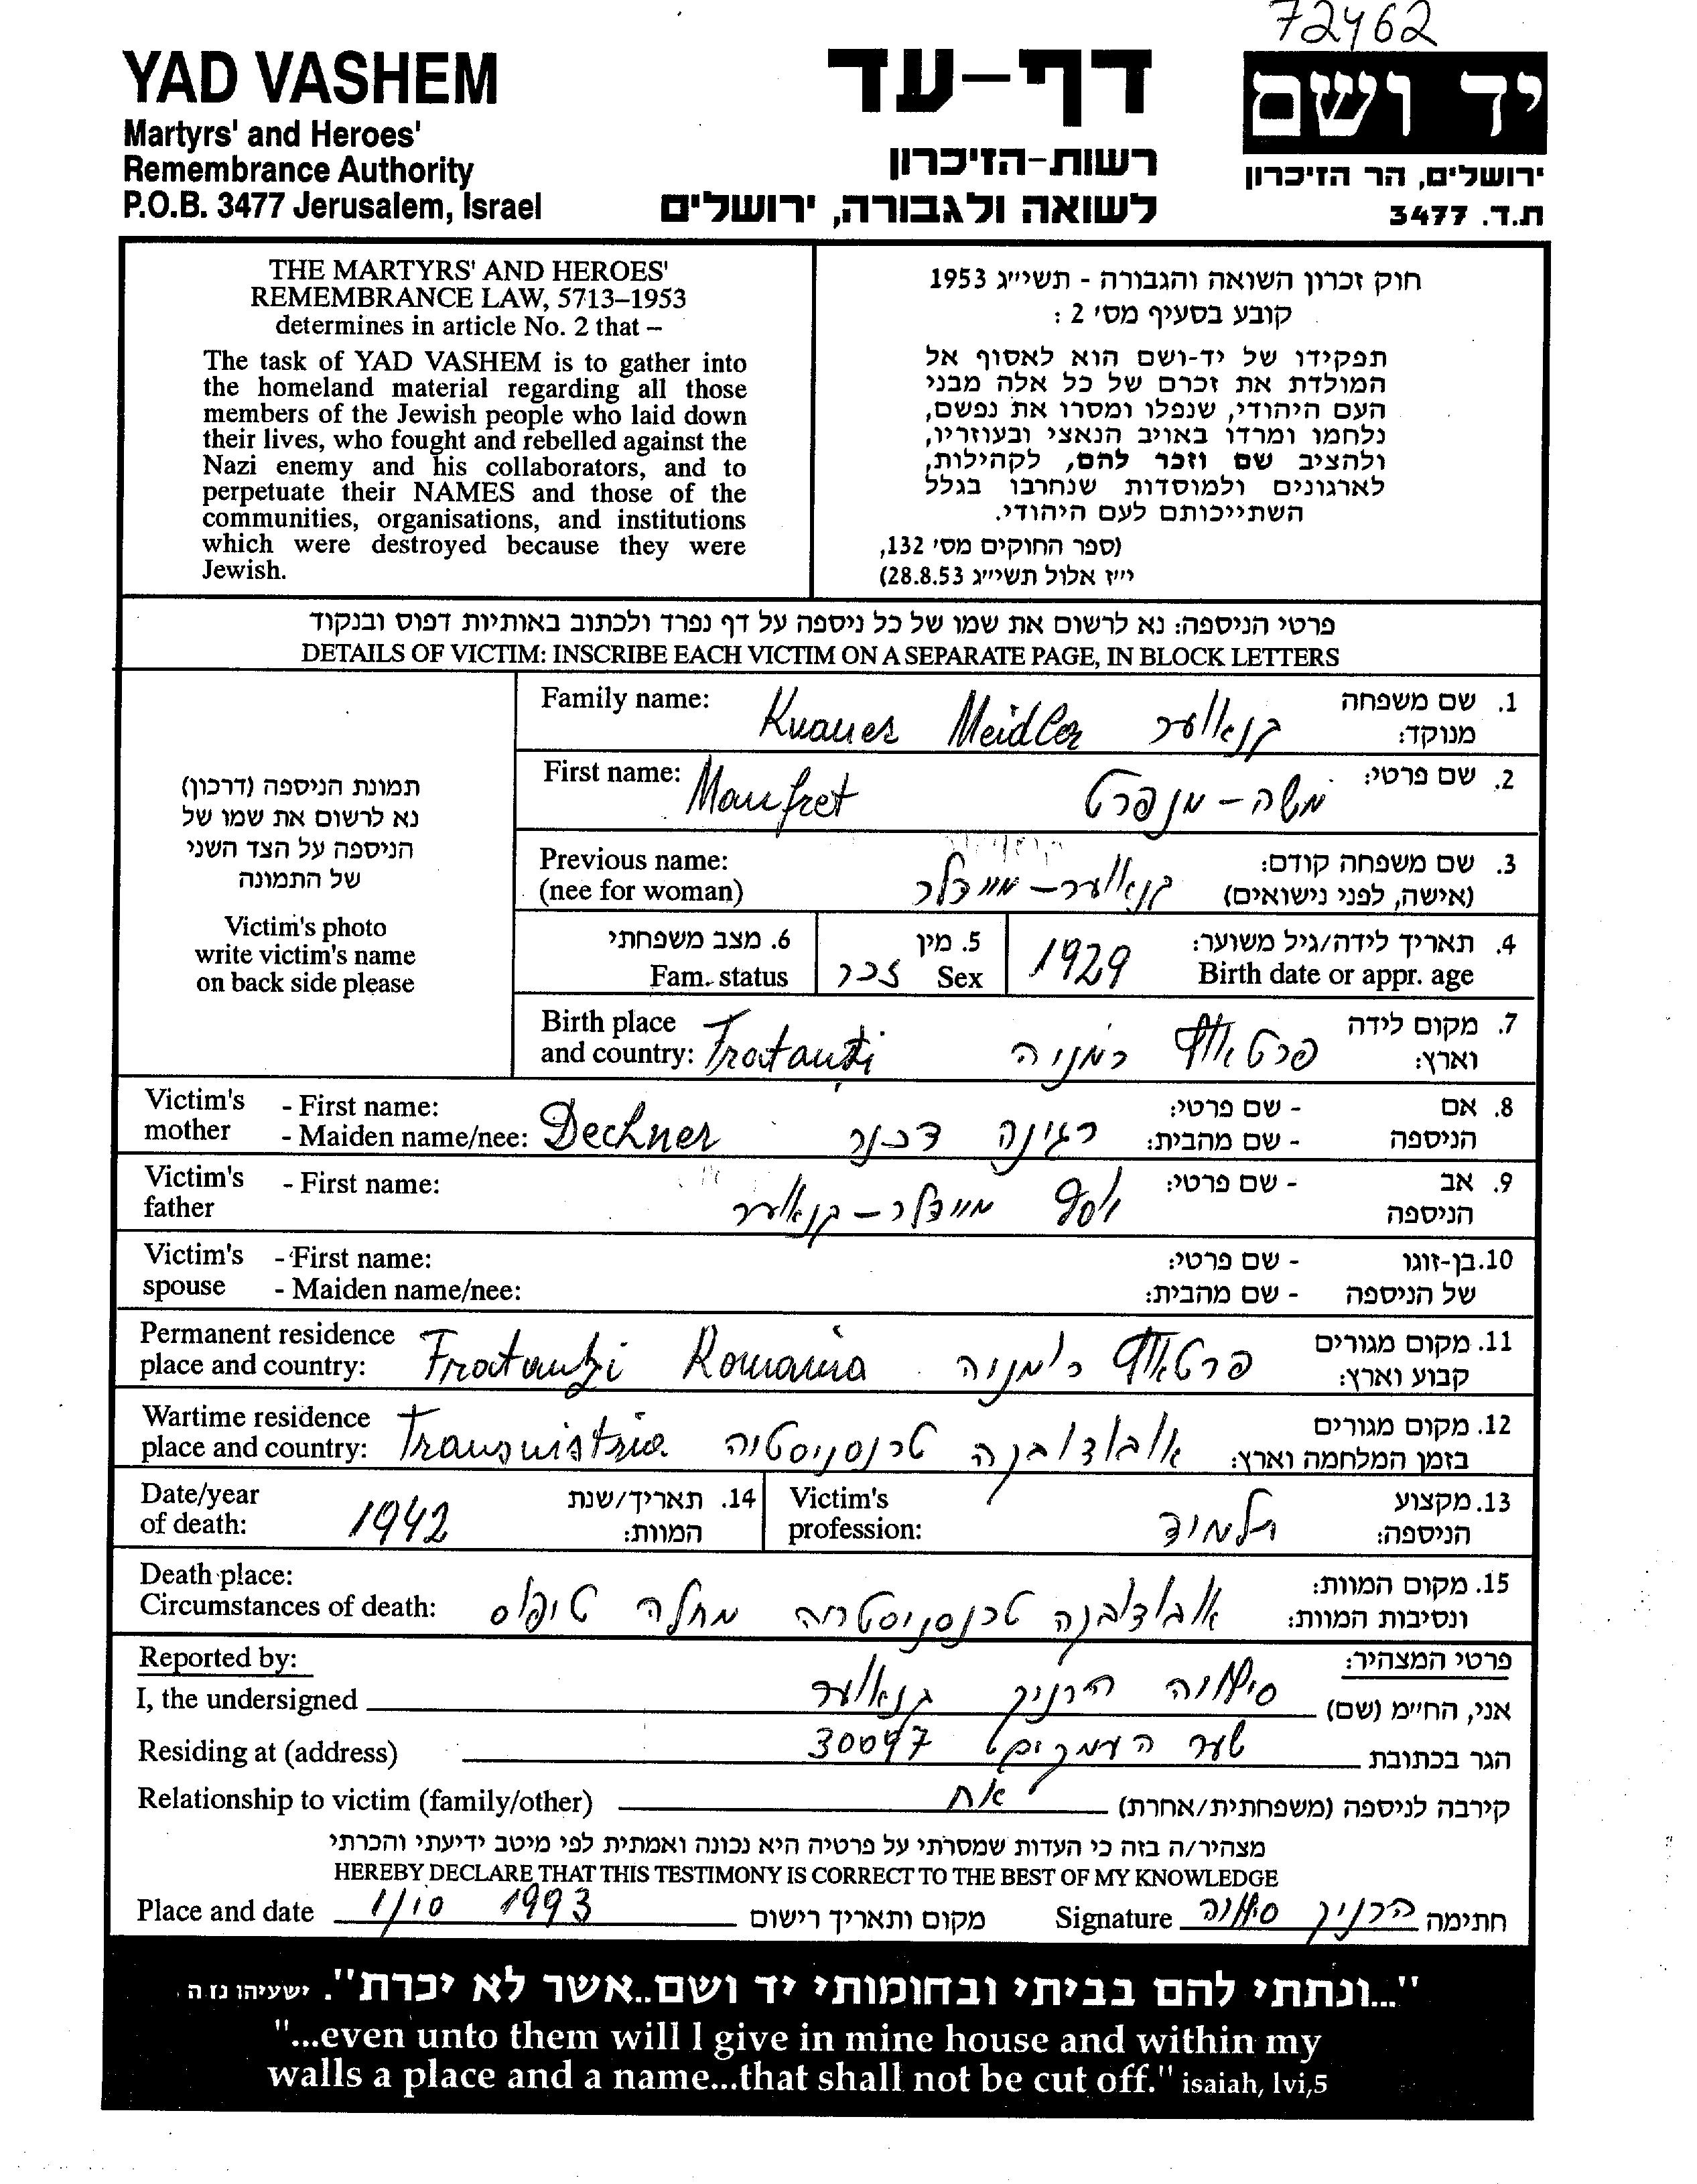 72462
YAD VASHEM
Martyrs' and Heroes'
Remembrance Authority
P.O.B. 3477 Jerusalem, Israel
דף-עד
רשות-הזיכרון
לשואה ולגבורה, ירושלים
יד ושם
ירושלים, הר הזיכרון
ת.ד. 3477
THE MARTYRS' AND HEROES'
REMEMBRANCE LAW, 5713–1953
determines in article No. 2 that –
The task of YAD VASHEM is to gather into
the homeland material regarding all those
members of the Jewish people who laid down
their lives, who fought and rebelled against the
Nazi enemy and his collaborators, and to
perpetuate their NAMES and those of the
communities, organisations, and institutions
which were destroyed because they were
Jewish.
חוק זכרון השואה והגבורה - תשי״ג 1953
קובע בסעיף מס׳ 2 :
תפקידו של יד-ושם הוא לאסוף אל
המולדת את זכרם של כל אלה מבני
העם היהודי, שנפלו ומסרו את נפשם,
נלחמו ומרדו באויב הנאצי ובעוזריו,
ולהציב שם וזכר להם, לקהילות,
לארגונים ולמוסדות שנחרבו בגלל
השתייכותם לעם היהודי.
(ספר החוקים מס׳ 132,
י״ז אלול תשי״ג 28.8.53)
פרטי הניספה: נא לרשום את שמו של כל ניספה על דף נפרד ולכתוב באותיות דפוס ובנקוד
DETAILS OF VICTIM: INSCRIBE EACH VICTIM ON A SEPARATE PAGE, IN BLOCK LETTERS
תמונת הניספה (דרכון)
נא לרשום את שמו של
הניספה על הצד השני
של התמונה
Victim's photo
write victim's name
on back side please
Family name: Knauer Meidler קנאוער 1. שם משפחה
מנוקד:
First name: Manfret משה - מנפרט 2. שם פרטי:
Previous name: 3. שם משפחה קודם:
(nee for woman) קנאוער - מיידלר (אישה, לפני נישואים)
6. מצב משפחתי 5. מין 4. תאריך לידה/גיל משוער:
Fam. status זכר Sex 1929 Birth date or appr. age
Birth place 7. מקום לידה
and country: Fratautzi רמניה וארץ:
Victim's - First name: - שם פרטי: 8. אם
mother - Maiden name/nee: Dechner רגינה דכנר - שם מהבית: הניספה
Victim's - First name: יוסף מיידלר - קנאוער - שם פרטי: 9. אב
father הניספה
Victim's - First name: - שם פרטי: 10. בן-זוגו
spouse - Maiden name/nee: - שם מהבית: של הניספה
Permanent residence 11. מקום מגורים
place and country: Fratautzi Romania רומניה קבוע וארץ:
Wartime residence 12. מקום מגורים
place and country: Transnistria בזמן המלחמה וארץ:
Date/year 14. תאריך/שנת Victim's 13. מקצוע
of death: 1942 המוות: profession: תלמיד הניספה:
Death place: 15. מקום המוות:
Circumstances of death: מחלה טיפוס ונסיבות המוות:
Reported by: פרטי המצהיר:
I, the undersigned קנאוער אני, החי״מ (שם)
Residing at (address) שער העמקים 30097 הגר בכתובת
Relationship to victim (family/other) אח קירבה לניספה (משפחתית/אחרת)
מצהיר/ה בזה כי העדות שמסרתי על פרטיה היא נכונה ואמתית לפי מיטב ידיעתי והכרתי
HEREBY DECLARE THAT THIS TESTIMONY IS CORRECT TO THE BEST OF MY KNOWLEDGE
Place and date 1/10 1993 מקום ותאריך רישום Signature חתימה
"...ונתתי להם בביתי ובחומותי יד ושם..אשר לא יכרת". ישעיהו נו ה
"...even unto them will I give in mine house and within my
walls a place and a name...that shall not be cut off." isaiah, lvi,5